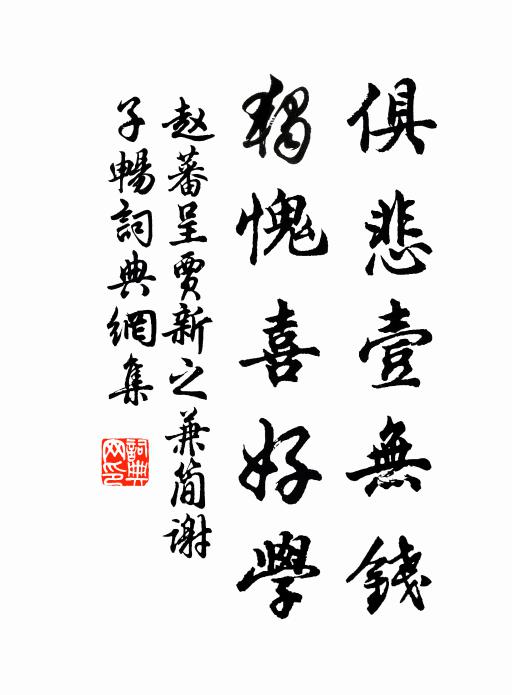 俱悲壹無錢
獨愧喜好學
赵蕃呈賈新之兼简謝
子暢詞典網集
詞典网印